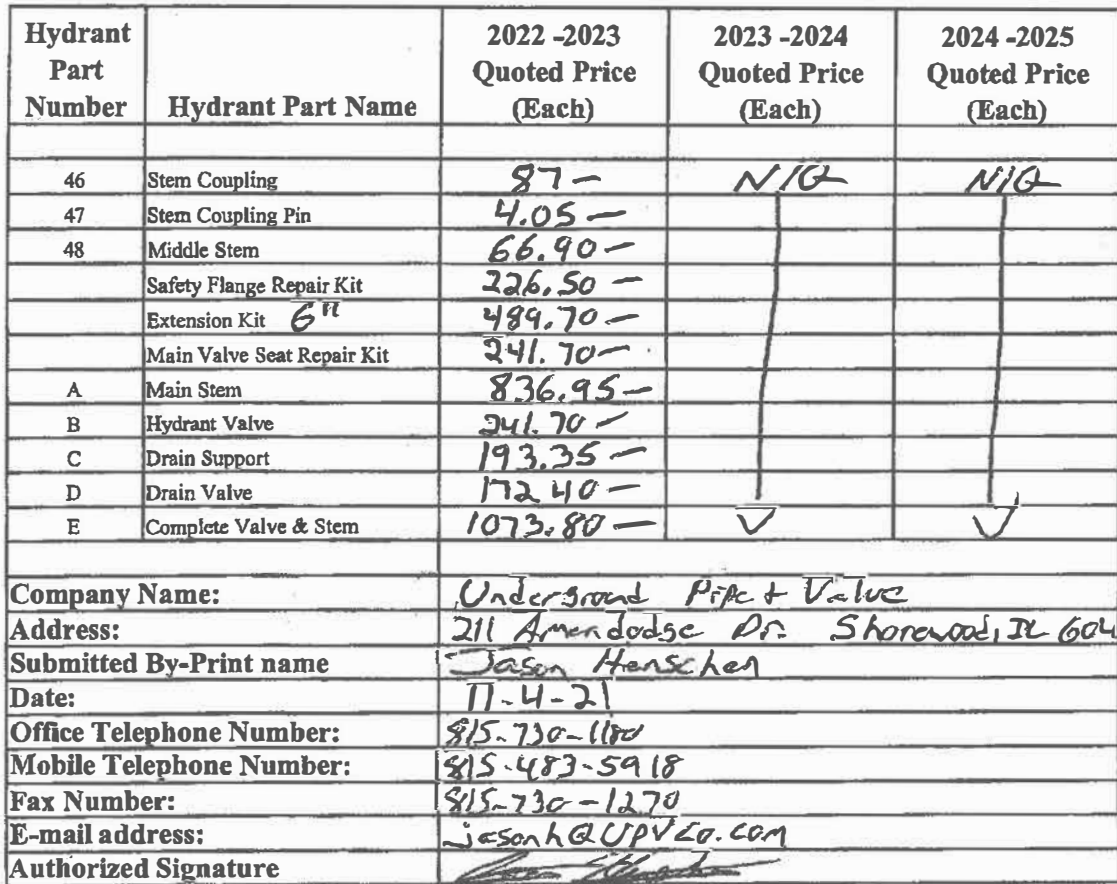 Hydrant Part Number Hydrant Part Name 2022 -2023 Quoted Price (Each) 2023 -2024 Quoted Price (Each) 2024 -2025 Quoted Price (Each)
46 Stem Coupling 87- N/Q N/Q
47 Stem Coupling Pin 4.05-
48 Middle Stem 66.90-
Safety Flange Repair Kit 226.50-
Extension Kit 6" 489.70-
Main Valve Seat Repair Kit 241.70-
A Main Stem 836.95-
B Hydrant Valve 241.70-
C Drain Support 193.35-
D Drain Valve 172.40-
E Complete Valve & Stem 1073.80-
Company Name: Underground Pipe + Valve
Address: 211 Amendodge Dr. Shorewood, IL 604
Submitted By-Print name Jason Henschen
Date: 11-4-21
Office Telephone Number: 815-730-1180
Mobile Telephone Number: 815-483-5918
Fax Number: 815-730-1270
E-mail address: jasonh@UPVCo.com
Authorized Signature